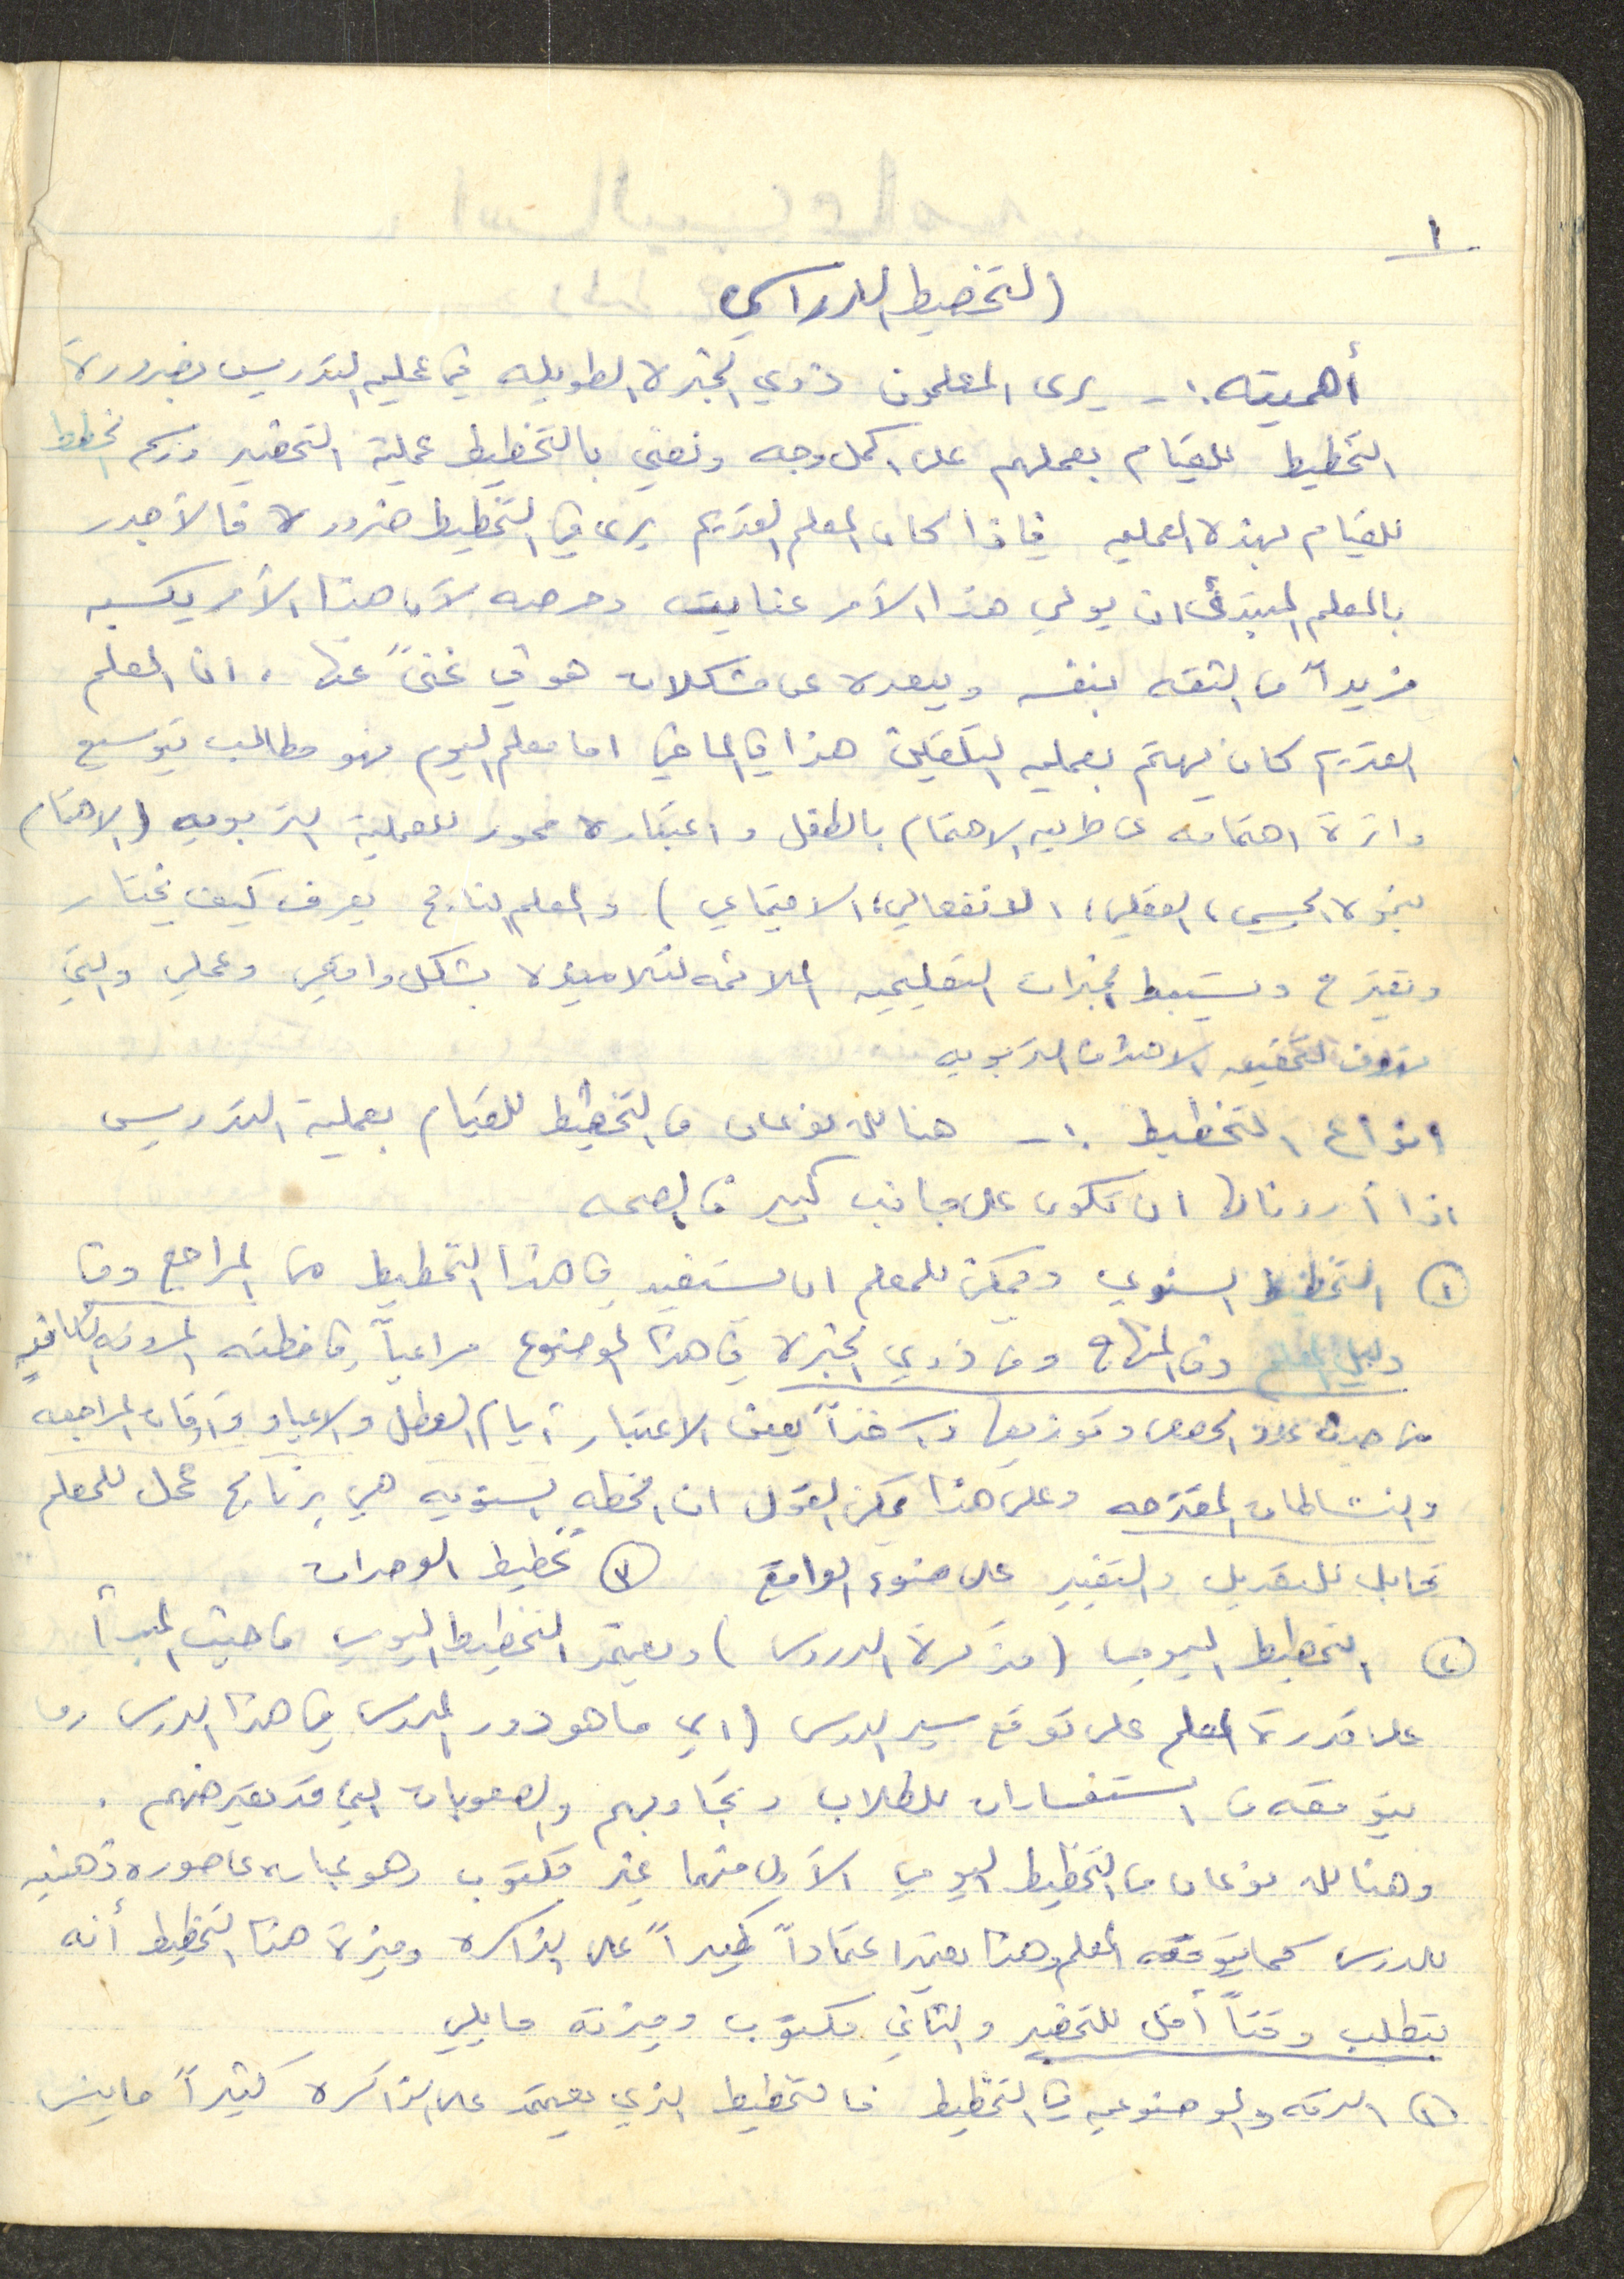 ١
التخطيط الدراسي
أهميته :- يرى المعلمون ذوي الخبرة الطويله في عمليه التدريس بضرورة
التخطيط للقيام بعملهم على اكمل وجه ونعني بالتخطيط عملية التحضير ورسم الخطط
للقيام بهذه العمليه فاذا كان المعلم القديم يرى في التخطيط ضرورة فالأجدر
بالمعلم المبتدئ ان يولي هذا الأمر عنايته وحرصه لأن هذا الأمر يكسبه
مزيداً من الثقه بنفسه ويبعده عن مشكلات هو في غنىً عنها ، ان المعلم
القديم كان يهتم بعمليه التلقين هذا في الماضي اما معلم اليوم فهو مطالب بتوسيع
دائرة اهتمامه عن طريق الاهتمام بالطفل واعتباره محور للعملية التربويه (الاهتمام
بنموه الجسمي ، العقلي ، الانفعالي ، الاجتماعي) والمعلم الناجح يعرف كيف يختار
ويقترح ويستنبط الخبرات التعليميه الملائمه لتلاميذه بشكل واقعي وعملي والتي
تهدف لتحقيق الاهداف التربويه
انواع التخطيط :- هنالك نوعان من التخطيط للقيام بعملية التدريس
اذا أردنا لها ان تكون على جانب كبير من الصحه
① التخطيط السنوي ويمكن للمعلم ان يستفيد في هذا التخطيط من المراجع ومن
دليل المعلم ومن المنهاج ومن ذوي الخبرة في هذا الموضوع مراعياً في خطته المرونه الكافيه
من حيث عدد الحصص وتوزيعها وآخذاً بعين الاعتبار أيام العطل والاعياد وأوقات المراجعه
والنشاطات المقترحه وعلى هذا يمكن القول ان الخطه السنويه هي برنامج عمل للمعلم
قابل للتعديل والتغيير على ضوء الواقع ③ تخطيط الوحدات
② التخطيط اليومي (مذكرة الدروس) ويعتمد التخطيط اليومي من حيث المبدأ
على قدرة المعلم على توقع سير الدرس (اي ما هو دور المدرس في هذا الدرس وما
يتوقعه من استفسارات للطلاب وتجاوبهم والصعوبات التي قد تعترضهم .
وهنالك نوعان من التخطيط اليومي الأول منهما غير مكتوب وهو عباره عن صوره ذهنيه
للدرس كما يتوقعه المعلم وهذا يعتمد اعتماداً كبيراً على الذاكره وميزة هذا التخطيط أنه
يتطلب وقتاً أقل للتحضير والثاني مكتوب وميزته مايلي
① الدقه والموضوعيه في التخطيط فالتخطيط الذي يعتمد على الذاكره كثيراً ماينسى